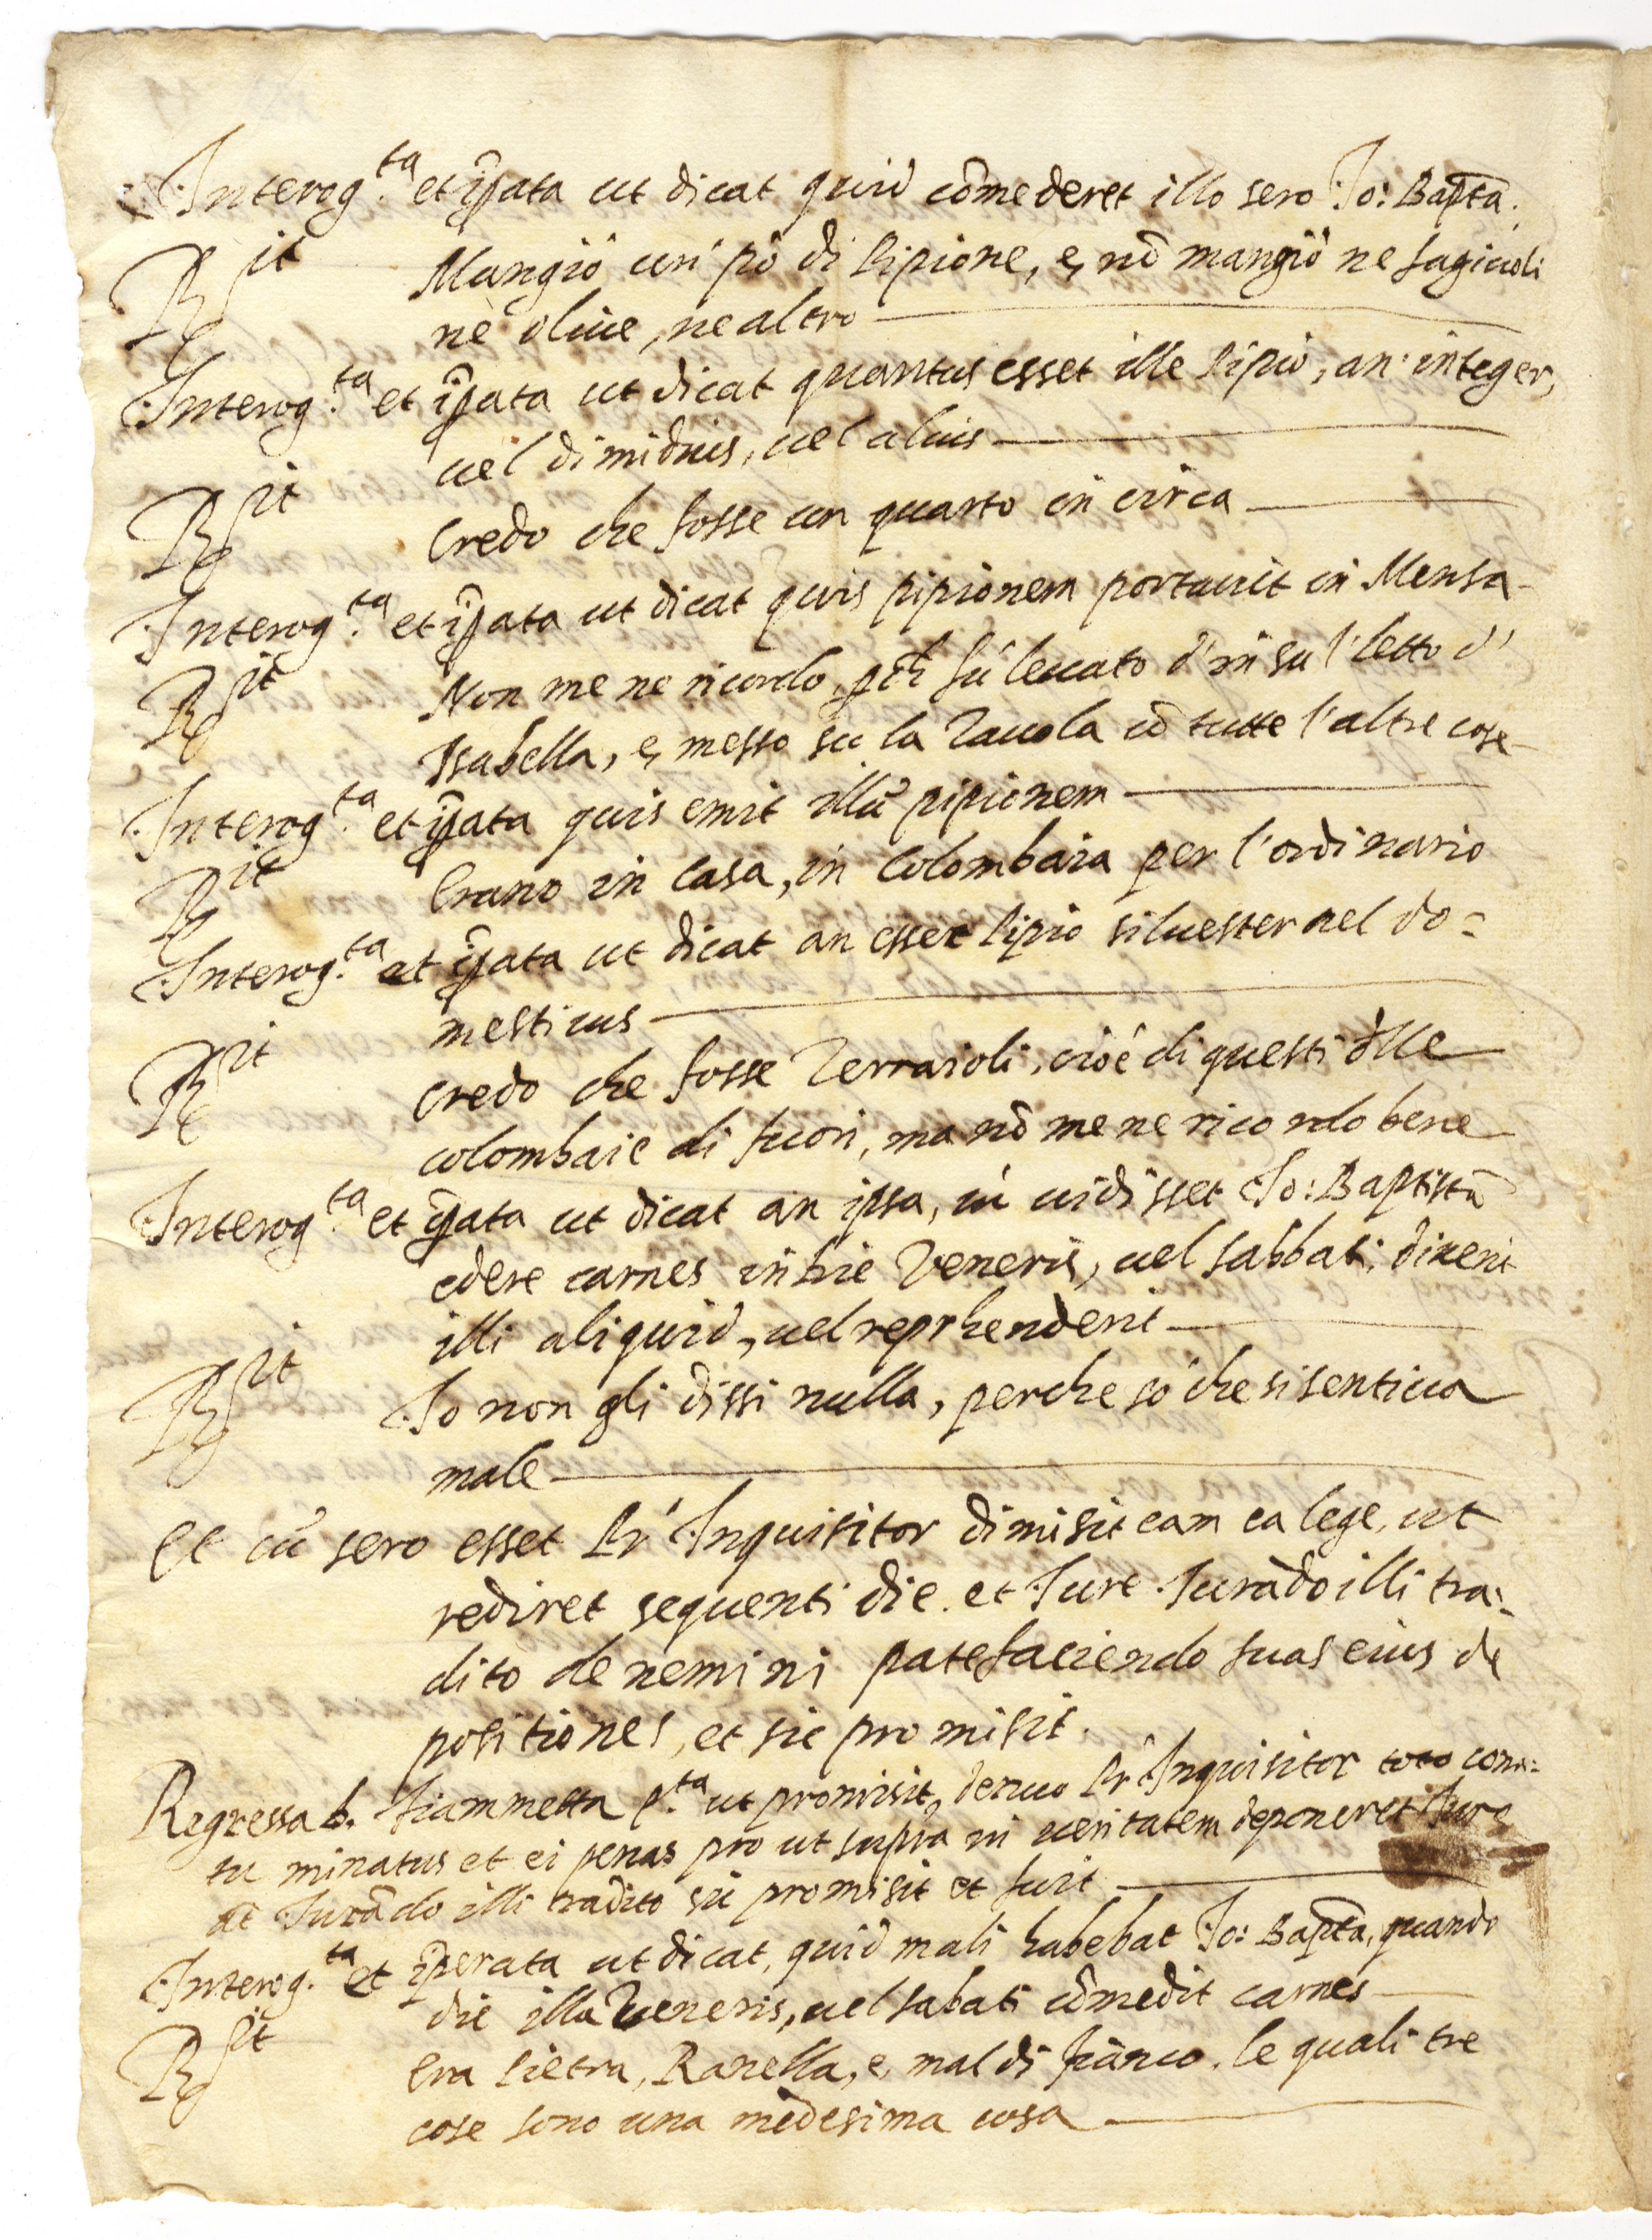 Interog.ta et ip̄ata ut dicat quid cōmederet illo sero Jo: Bap̄ta.
Rsit Mangiò un' pò di Pipione, e, nō mangiò ne fagiuoli
nè oliue, ne altro
Interog.ta et ip̄ata ut dicat quantus esset ille Pipio, an integer,
uel dimidius, uel alius
Rsit Credo che fosse un quarto in circa
Interog.ta et ip̄ata ut dicat quis pipionem portauit in Mensa
Rsit Non me ne ricordo, p̄ch fù leuato d'in su l'letto d'
Isabella, e, messo sù la Tauola cō tutte l'altre cose
Interog.ta et ip̄ata quis emit illū pipionem
Rsit Erano in casa, in Colombaia per l'ordinario
Interog.ta et ip̄ata ut dicat an esset Pipio siluester uel do=
mesticus
Rsit Credo che fosse Terraioli, cioè di questi d̄lle
colombaie di fuori, ma nō me ne ricordo bene
Interog.ta et ip̄ata ut dicat an ipsa, cū uidisset Jo: Baptistā
edere carnes in die Veneris, uel sabbati, dixerit
illi aliquid, uel reprhenderit
Rsit Io non gli dissi nulla, perche sò che si sentiua
male
Et cū sero esset Pr Inquisitor dimisit eam ea lege, ut
rediret sequenti die. et Jure Jurādo illi tra=
dito de nemini patefaciendo suas eius de
positiones, et sic promisit.
Regressa d. Fiammetta p.ta ut promisit, denuo Pr Inquisitor toto cona=
tu minatus et ei penas pro ut supra ni ueritatem deponeret Jure
at Jurādo illi tradito sic promisit et Jurit
Interog.ta et ip̄erata ut dicat, quid mali habebat Jo: Bap̄ta, quando
die illa Veneris, uel sabati cōmedit carnes
Rsit Era Pietra, Ranella, e, mal di fianco. le quali tre
cose sono una medesima cosa